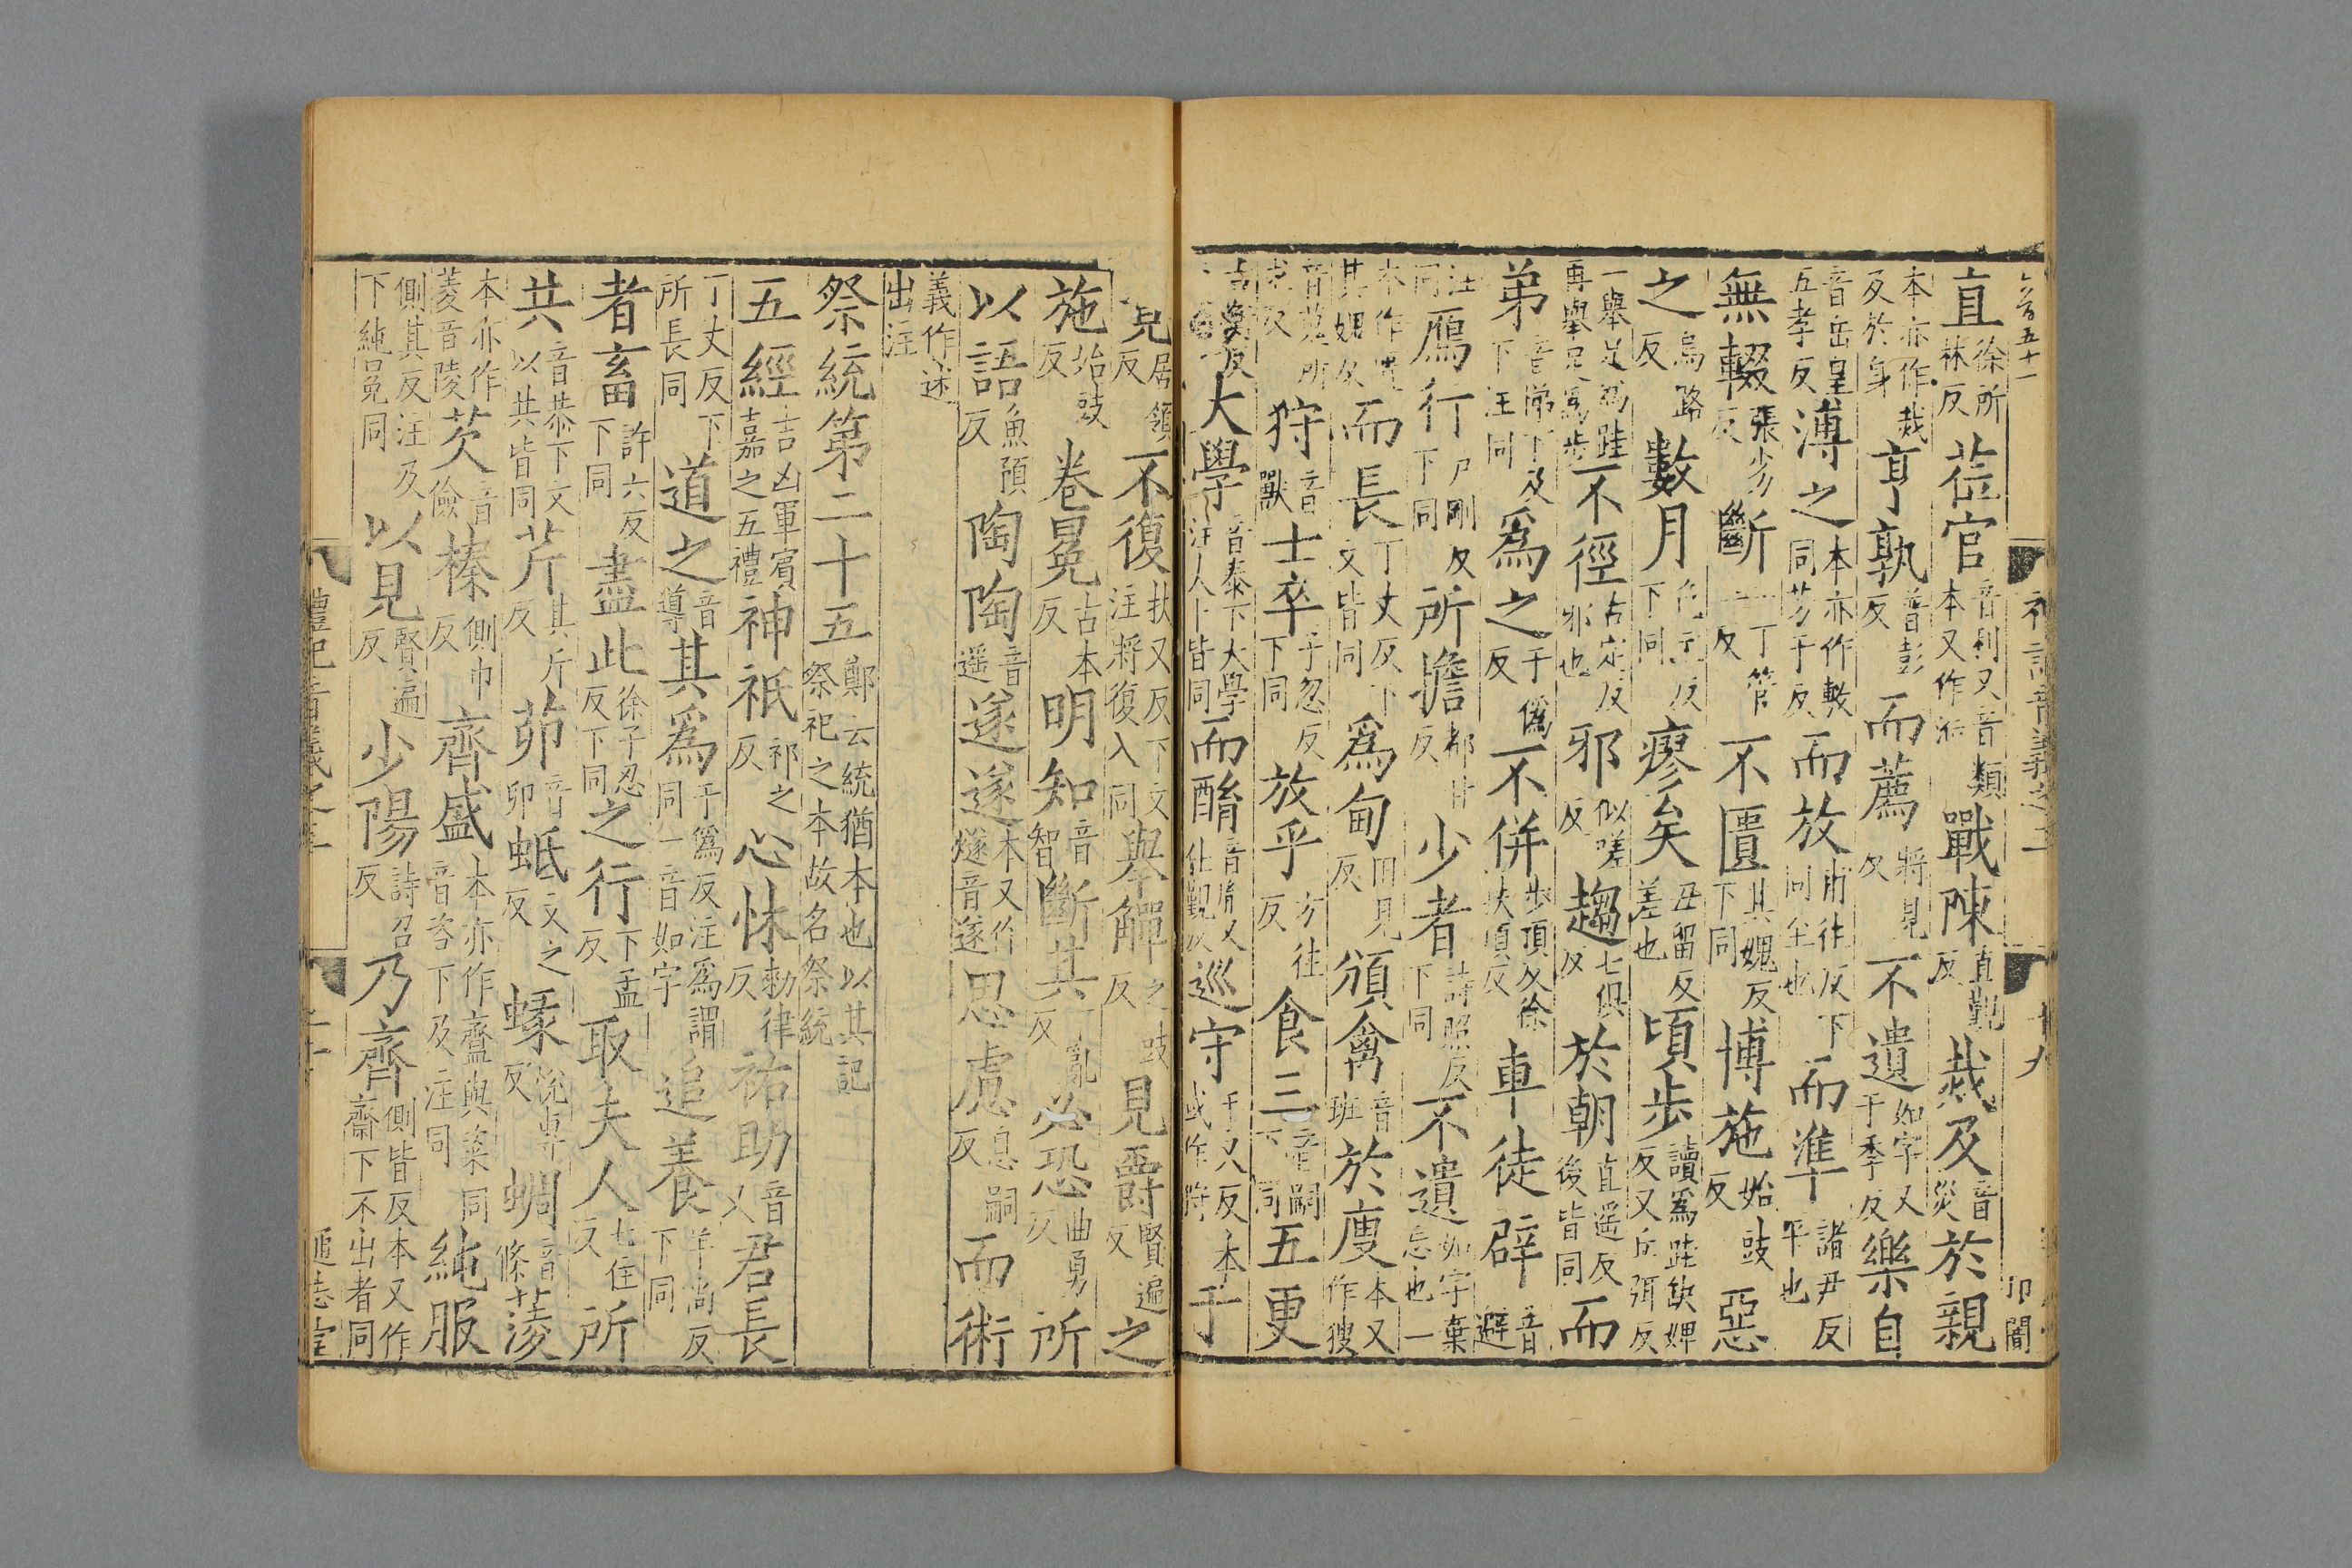 直徐所林反莅官音利又音類本又作涖戰陳直覲反烖及音災於親
本亦作裁反於身亨孰普彭反而薦將見反不遺如字又于季反樂自
音岳皇五孝反溥之本亦作敷同芳于反而放甫往反下同至也而準諸尹反平也
無輟張劣反斷一丁管反不匱其媿反下同博施始豉反惡
之烏路反數月色主反下同瘳矣丑留反差也頃步讀爲跬缺婢反又丘弭反
一舉足爲跬再舉足爲步不徑古定反邪也邪似嗟反趨七俱反於朝直遥反後皆同而
弟音悌下及下注同爲之于僞反不併步頂反徐扶頂反車徒辟音避
注同鴈行戶剛反下同所擔都甘反少者詩照反下同不遺如字棄忘也一
本作匱其媿反而長丁丈反下文皆同爲甸田見反頒禽音班於廋本又作獀
音蒐所求反狩音獸士卒子忽反下同放乎方往反食三音嗣下同五更
古衡反大學音泰下大學注人卜皆同而酳音胤又仕覲反巡守手又反本或作狩于
見居領反不復扶又反下文注將復入同舉觶之豉反見爵賢遍反之
施始豉反卷冕古本反明知音智斷其丁亂反必恐曲勇反所
以語魚預反陶陶音遥遂遂本又作燧音遂思慮息嗣反而術
義作述出注
祭統第二十五鄭云統猶本也以其記祭祀之本故名祭統
五經吉凶軍賓嘉之五禮神祇祁之反心怵勑律反祐助音又君長
丁丈反下所長同道之音導其爲于爲反注爲謂同一音如字追養羊尚反下同
者畜許六反下同盡此徐子忍反下同之行下孟反取夫人七住反所
共音恭下文以共皆同芹其斤反茆音卯蚳丈之反蝝悅專反蜩音條蔆
本亦作菱音陵芡音儉榛側巾反齊盛本亦作齍與粢同音咨下及注同純服
側其反注及下純冕同以見賢遍反少陽詩召反乃齊側皆反本又作齋下不出者同
禮記音義之三
通志堂